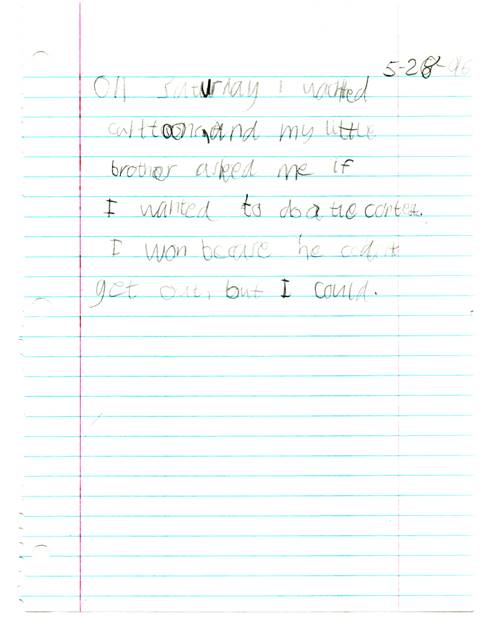 5-28-96
On Saturday I wacthed
carttoons, and my little
brother asked me if
I wanted to do a tie contest.
I won becuase he
get out, but I could.